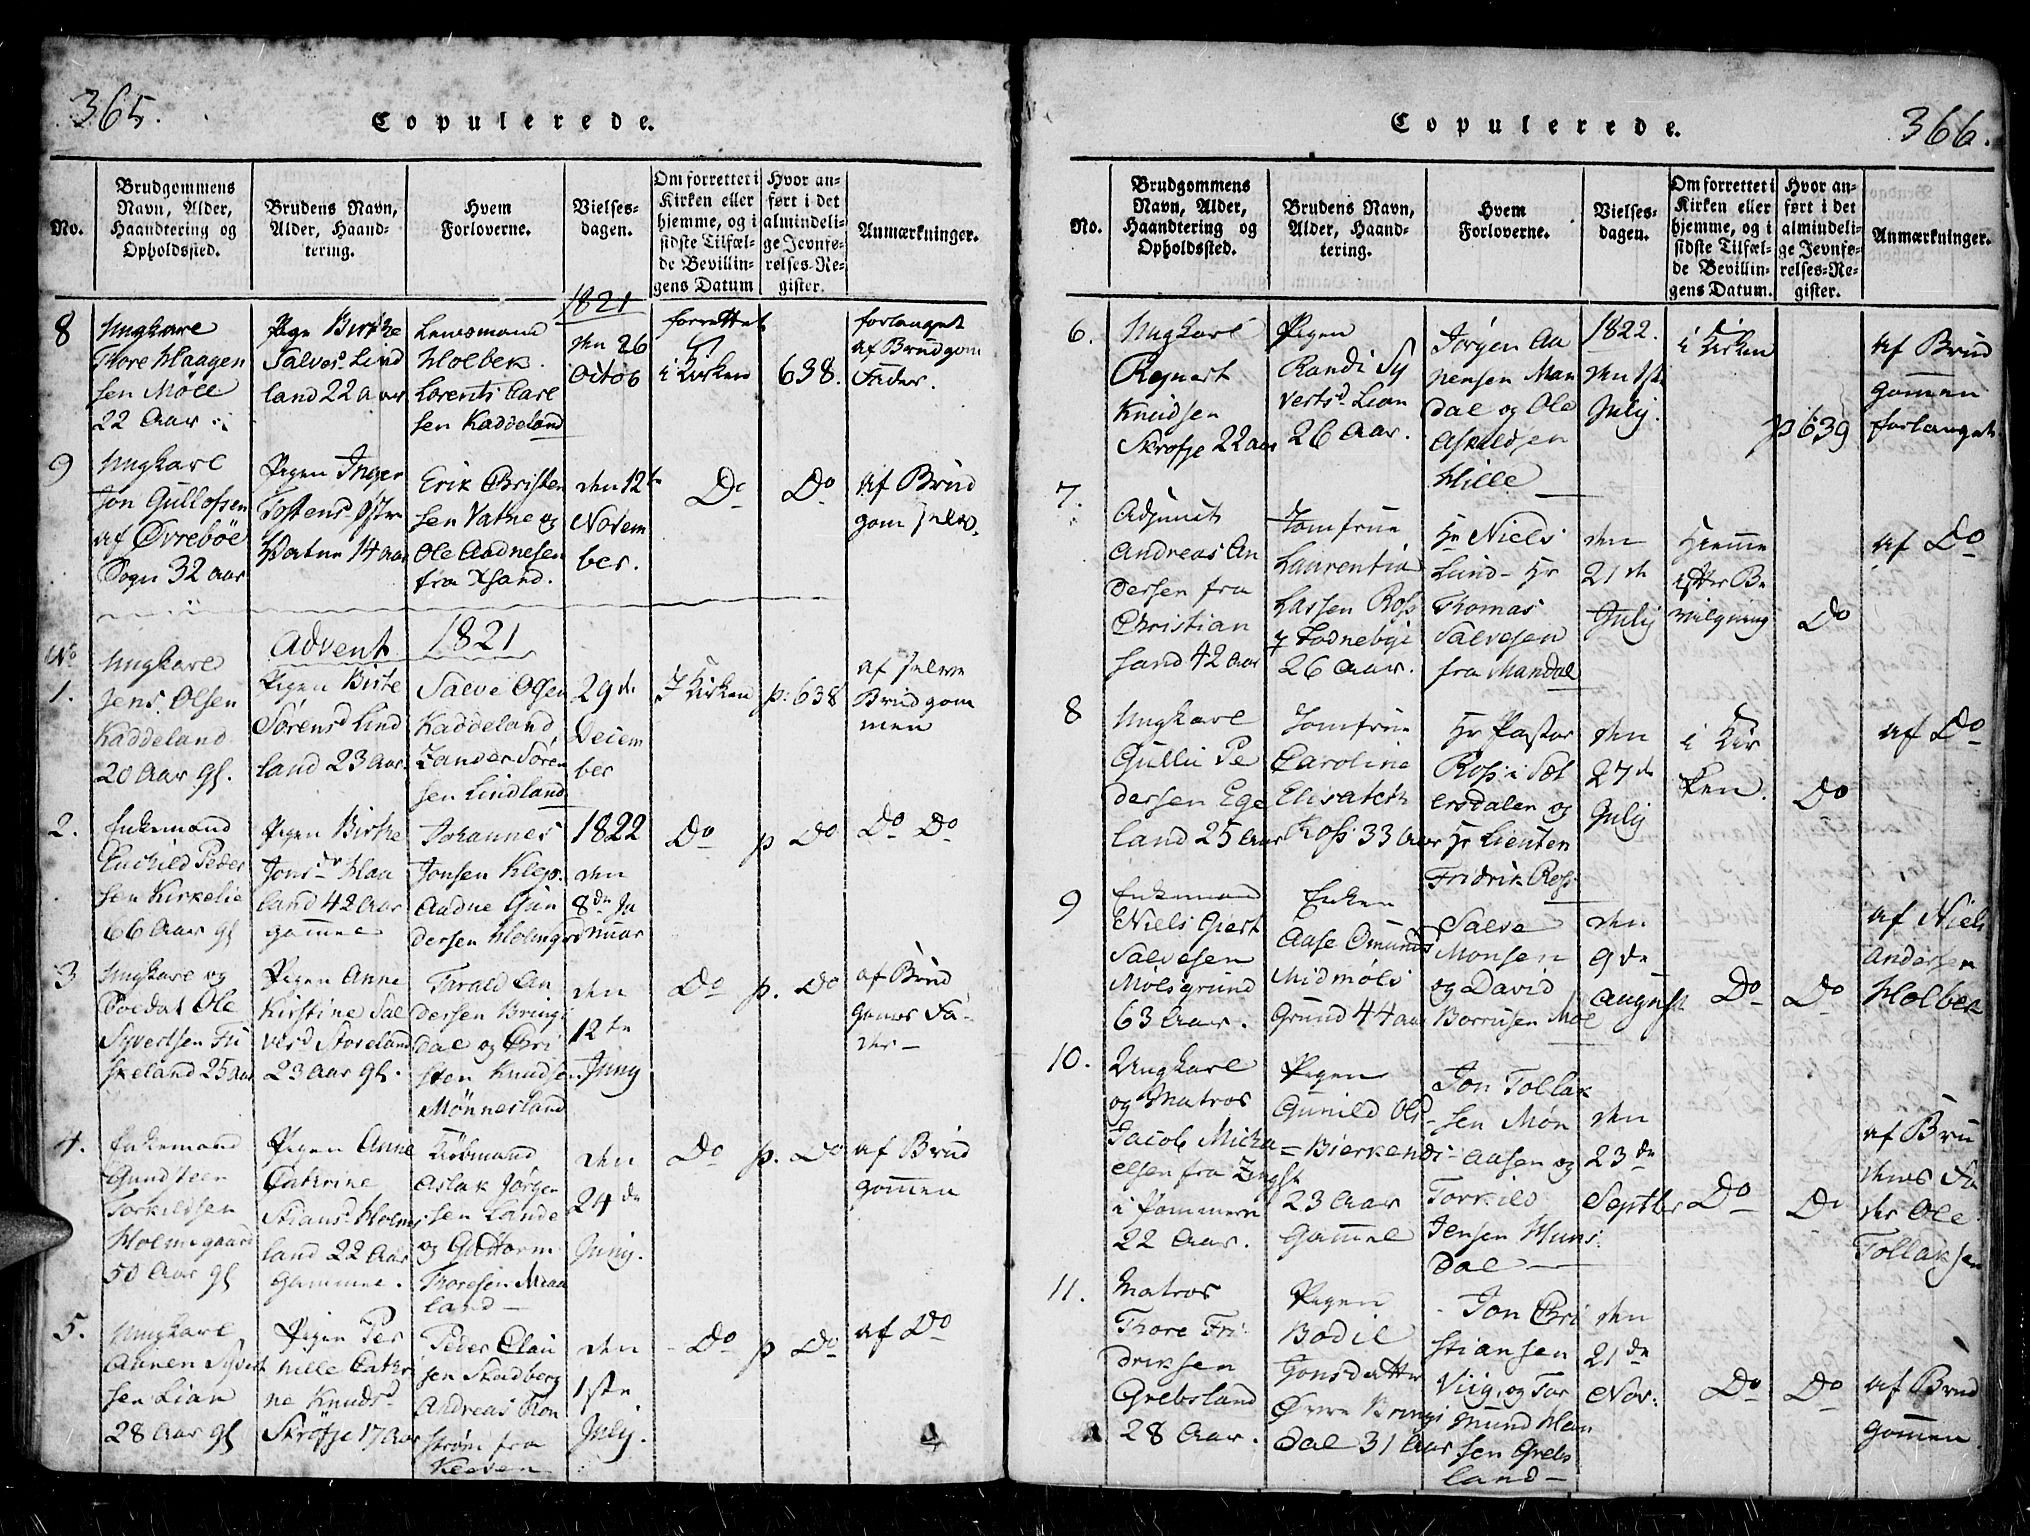 365.
Copulerede.
No.
Brudgommens Navn, Alder, Haandtering og Opholdssted.
Brudens Navn, Alder, Haandtering.
Hvem Forloverne.
Vielses-dagen.
Om forrettet i Kirken eller hjemme, og i sidste Tilfælde Bevillingens Datum
Hvor anført i det almindelige Jevnførelses-Register.
Anmærkninger.
8
Ungkarl
Thore Haagen
sen Møll
22 Aar
Pige Birthe
Salves. Lind
land 22 Aar
Lensmand
Holbek
Lorents Carl
sen Kaddeland
1821
den 26
Octob
forrettet
i Kirken
638.
forlanget
af Brudgom
Fader.
9
Ungkarl
Jon Gullofsen
af Øvrebøe
Sogn 32 aar
Pigen Inger
Tostens.
14 aar
Erik Christen
sen Vatne og
Ole Aadnesen
fra Xsand.
den 12te
Novem
ber.
Do
Do
af Brud
gom selv.
Advent 1821
No
1.
Ungkarl
Jens Olsen
Kaddeland
20 Aar gl.
Pigen Birte
Sørensd Lind
land 23 Aar.
Salve Olsen
Kaddeland,
Zander Søren
sen Lindland
29de
Decem
ber
I Kirken
p: 638
af selve
Brudgom
men
2.
Enkemand
Peder
sen Kirkelie
66 Aar gl
Pigen Birthe
Jonsdr Haa
land 42 Aar
gammel
Johannes
Jonsen Klep.
Aadne Gun
dersen Holmegrd
1822
den
8de Ja
nuar
Do
p Do
Do Do
3
Ungkarl og
Soldat Ole
Syvertsen Fu
skeland 25 Aar
Pigen Anne
Kirstine Sal
vesd Storeland
23 Aar gl.
Tarald An
dersen Brings
dal og Chri
sten Knudsen
Mønnesland
den
12te
Juny
Do
p. Do
af Brud
gomes Fa-
der-
4.
Enkemand
Gundtoer
Torkildsen
Holmegaard
50 Aar gl
Pigen Anne
Cathrine
Stiansd Holmes
land 22 Aar
gammel.
Kiøbmand
Aslak Jørgen
sen Lande
og Guttorm
Thoresen Miaa
land-
den
24de
Juny.
Do
p. Do
af Brud
gommen
5.
Ungkarl
Aanen Syvert
sen Lian
28 Aar gl
Pigen Per
nille Cathri
ne Knudsd
Skrøfje 17 Aar
Peder Clau
sen Stadberg
Andreas Ron
strøm fra
Kleven
den
1ste
July.
Do
p Do
af Do
366.
Copulerede.
No.
Brudgommens Navn, Alder, Haandtering og Opholdssted.
Brudens Navn, Alder, Haandtering.
Hvem Forloverne.
Vielses-dagen.
Om forrettet i Kirken eller hjemme, og i sidste Tilfælde Bevillingens Datum.
Hvor anført i det almindelige Jevnførelses-Register.
Anmærkninger.
6.
Ungkarl
Reinert
Knudsen
Skrøfje 22 aar
Pigen
Randi Sy
vertsd Lian
26 Aar.
Jørgen Aa
nensen Man
dal og Ole
Askildsen
Hille
1822.
den 1ste
July.
i Kirken
p 639
af Brud
gommen
forlanget
7.
Adjunct
Andreas An
dersen fra
Christian
sand 42 Aar
Jomfrue
Laurentia
Lassen Ross
26 Aar.
Hr Niels
Lund- Hr
Thomas
Salvesen
fra Mandal
den
21de
July
Hjemme
efter Be
vilgning
Do
af Do
8
Ungkarl
Gulli Pe
dersen Ege
land 25 Aar
Jomfrue
Caroline
Elisabeth
Ross 33 Aar
Hr Pastor
Ross i Sæt
ersdalen og
Hr Lieuten
Fridrik Ross
den
27de
July
i Kir
ken.
Do
af Do
9
Enkemand
Niels Giert
Salvesen
Mølsgrund
63 Aar.
Enken
Aase Omunds
Midmøls
Grund 44 aar
Salve
Monsen
og David
Borrusen Møl
den
9de
August
Do
Do
af Niels
Andersen
Holbek
10.
Ungkarl
og Matros
Jacob Micha
elsen fra Zingst
i Pommern
22 Aar.
Pigen
Gunild Ols
Bierkends
23 Aar
Gammel
Jon Tollak
sen Møn
Aasen og
Torkild
Jensen Huns
dal
den
23de
Septbr
Do
Do
af Bru
dens Fa
der Ole
Tollaksen
11.
Matros
Thore Fri
driksen
Grebsland
28 Aar.
Pigen
Bodil
Jonsdatter
Øvre Brings
dal 31 Aar
Jon Chri
stiansen
Viig, og Tor
mund Han
sen Grebs
land-
den
21de
Nov:
Do
Do
af Brud
gommen